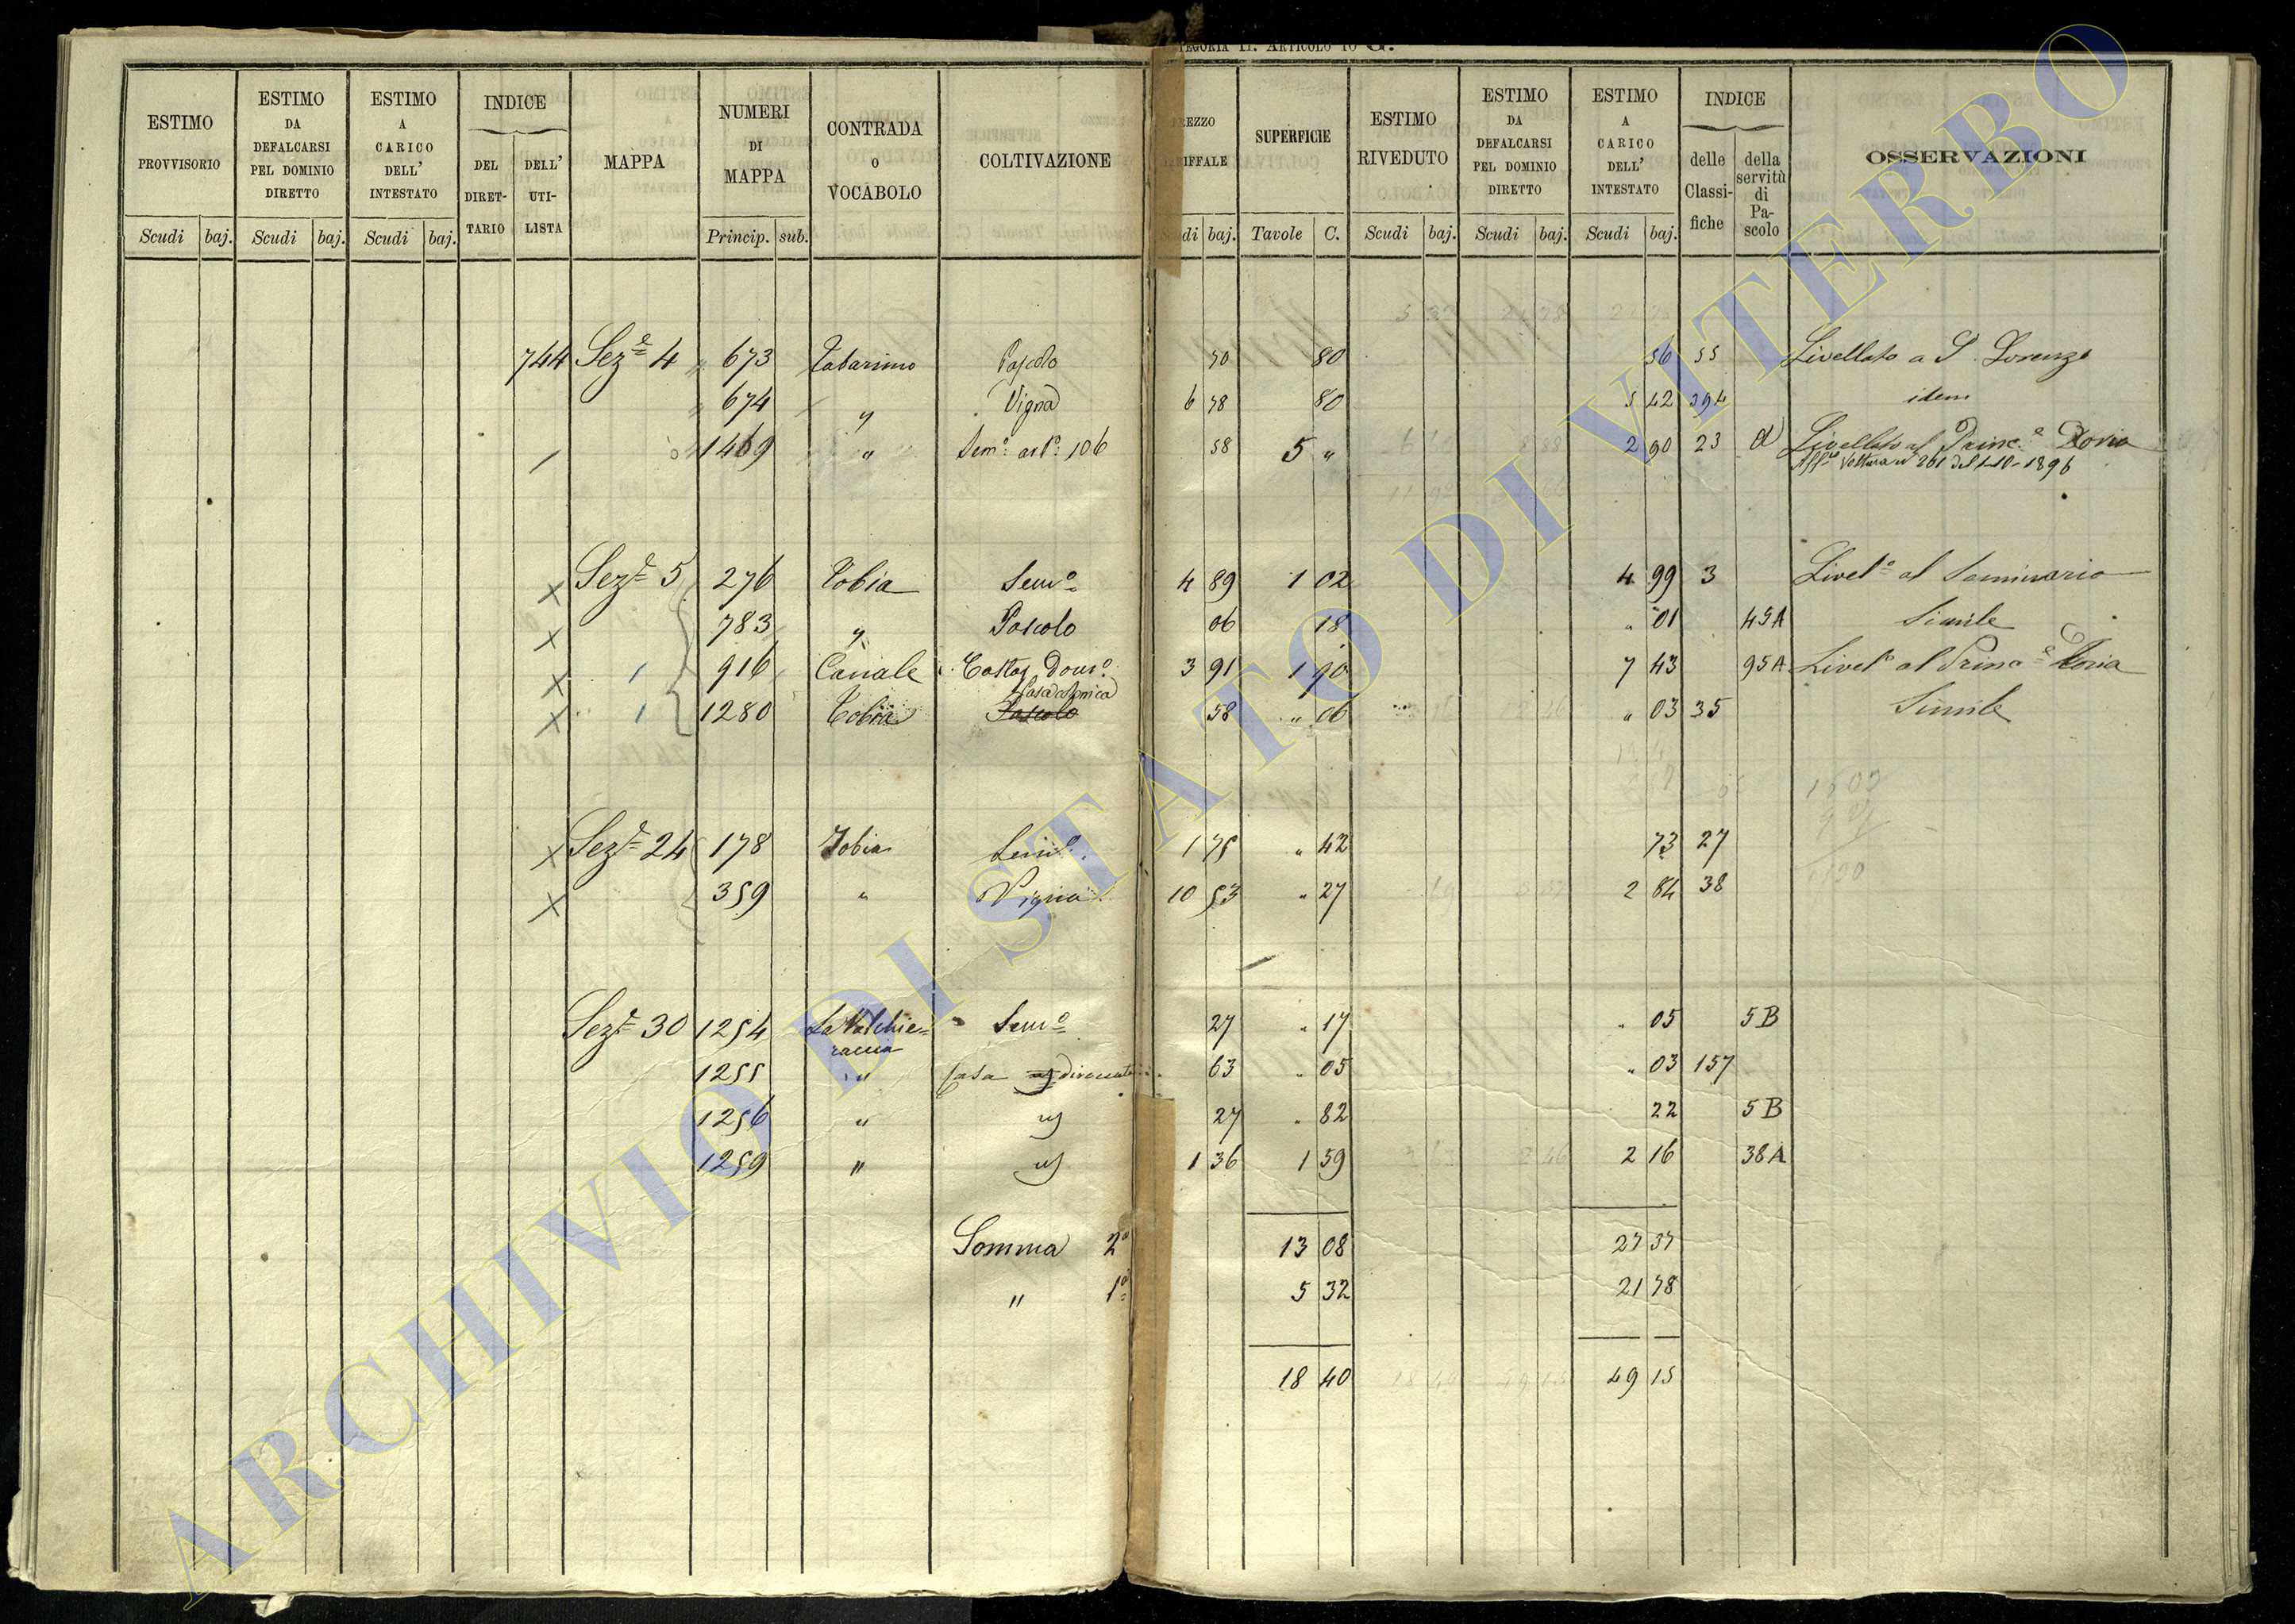 ARTICOLO 10 G.
ESTIMO PROVVISORIO
Scudi baj.
ESTIMO DA DEFALCARSI PEL DOMINIO DIRETTO
Scudi baj.
ESTIMO A CARICO DELL' INTESTATO
Scudi baj.
INDICE
DEL DIRET-TARIO
DELL' UTI-LISTA
MAPPA
NUMERI DI MAPPA
Princip. sub.
CONTRADA o VOCABOLO
COLTIVAZIONE
baj.
SUPERFICIE
Tavole C.
ESTIMO RIVEDUTO
Scudi baj.
ESTIMO DA DEFALCARSI PEL DOMINIO DIRETTO
Scudi baj.
ESTIMO A CARICO DELL' INTESTATO
Scudi baj.
INDICE
delle Classi-fiche
della servitù di Pa-scolo
OSSERVAZIONI
744 Sez.e 4 673 Tabarino Pascolo 70 80 56 55 Livellato a S. Lorenzo
674 " Vigna 6 78 80 5 42 394 idem
1469 " Sem.o art.o 106 58 5 " 2 90 23 d Livellato al Princ.e Doria
Voltura n 261 del 1-10-1896
Sez.e 5 276 Tobia Sem.o 4 89 1 02 4 99 3 Livel.o al Seminario
783 " Pascolo 06 18 " 01 45A Simile
1 916 Canale 3 91 1 90 7 43 95A Livel.o al Princ.e Doria
Casa colonica
1 1280 Tobia Pascolo 58 " 06 " 03 35 Simile
Sez.e 24 178 Tobia Sem.o 1 75 " 42 73 27
359 " Vigna 10 53 " 27 2 84 38
Sez.e 30 1254 La Valchie=racca Sem.o 27 " 17 " 05 5B
1255 " Casa 63 " 05 " 03 157
1256 " 27 " 82 22 5B
1259 " 1 36 1 59 2 16 38A
Somma 2a 13 08 27 37
" 1a 5 32 21 78
18 40 49 15
ARCHIVIO DI STATO DI VITERBO